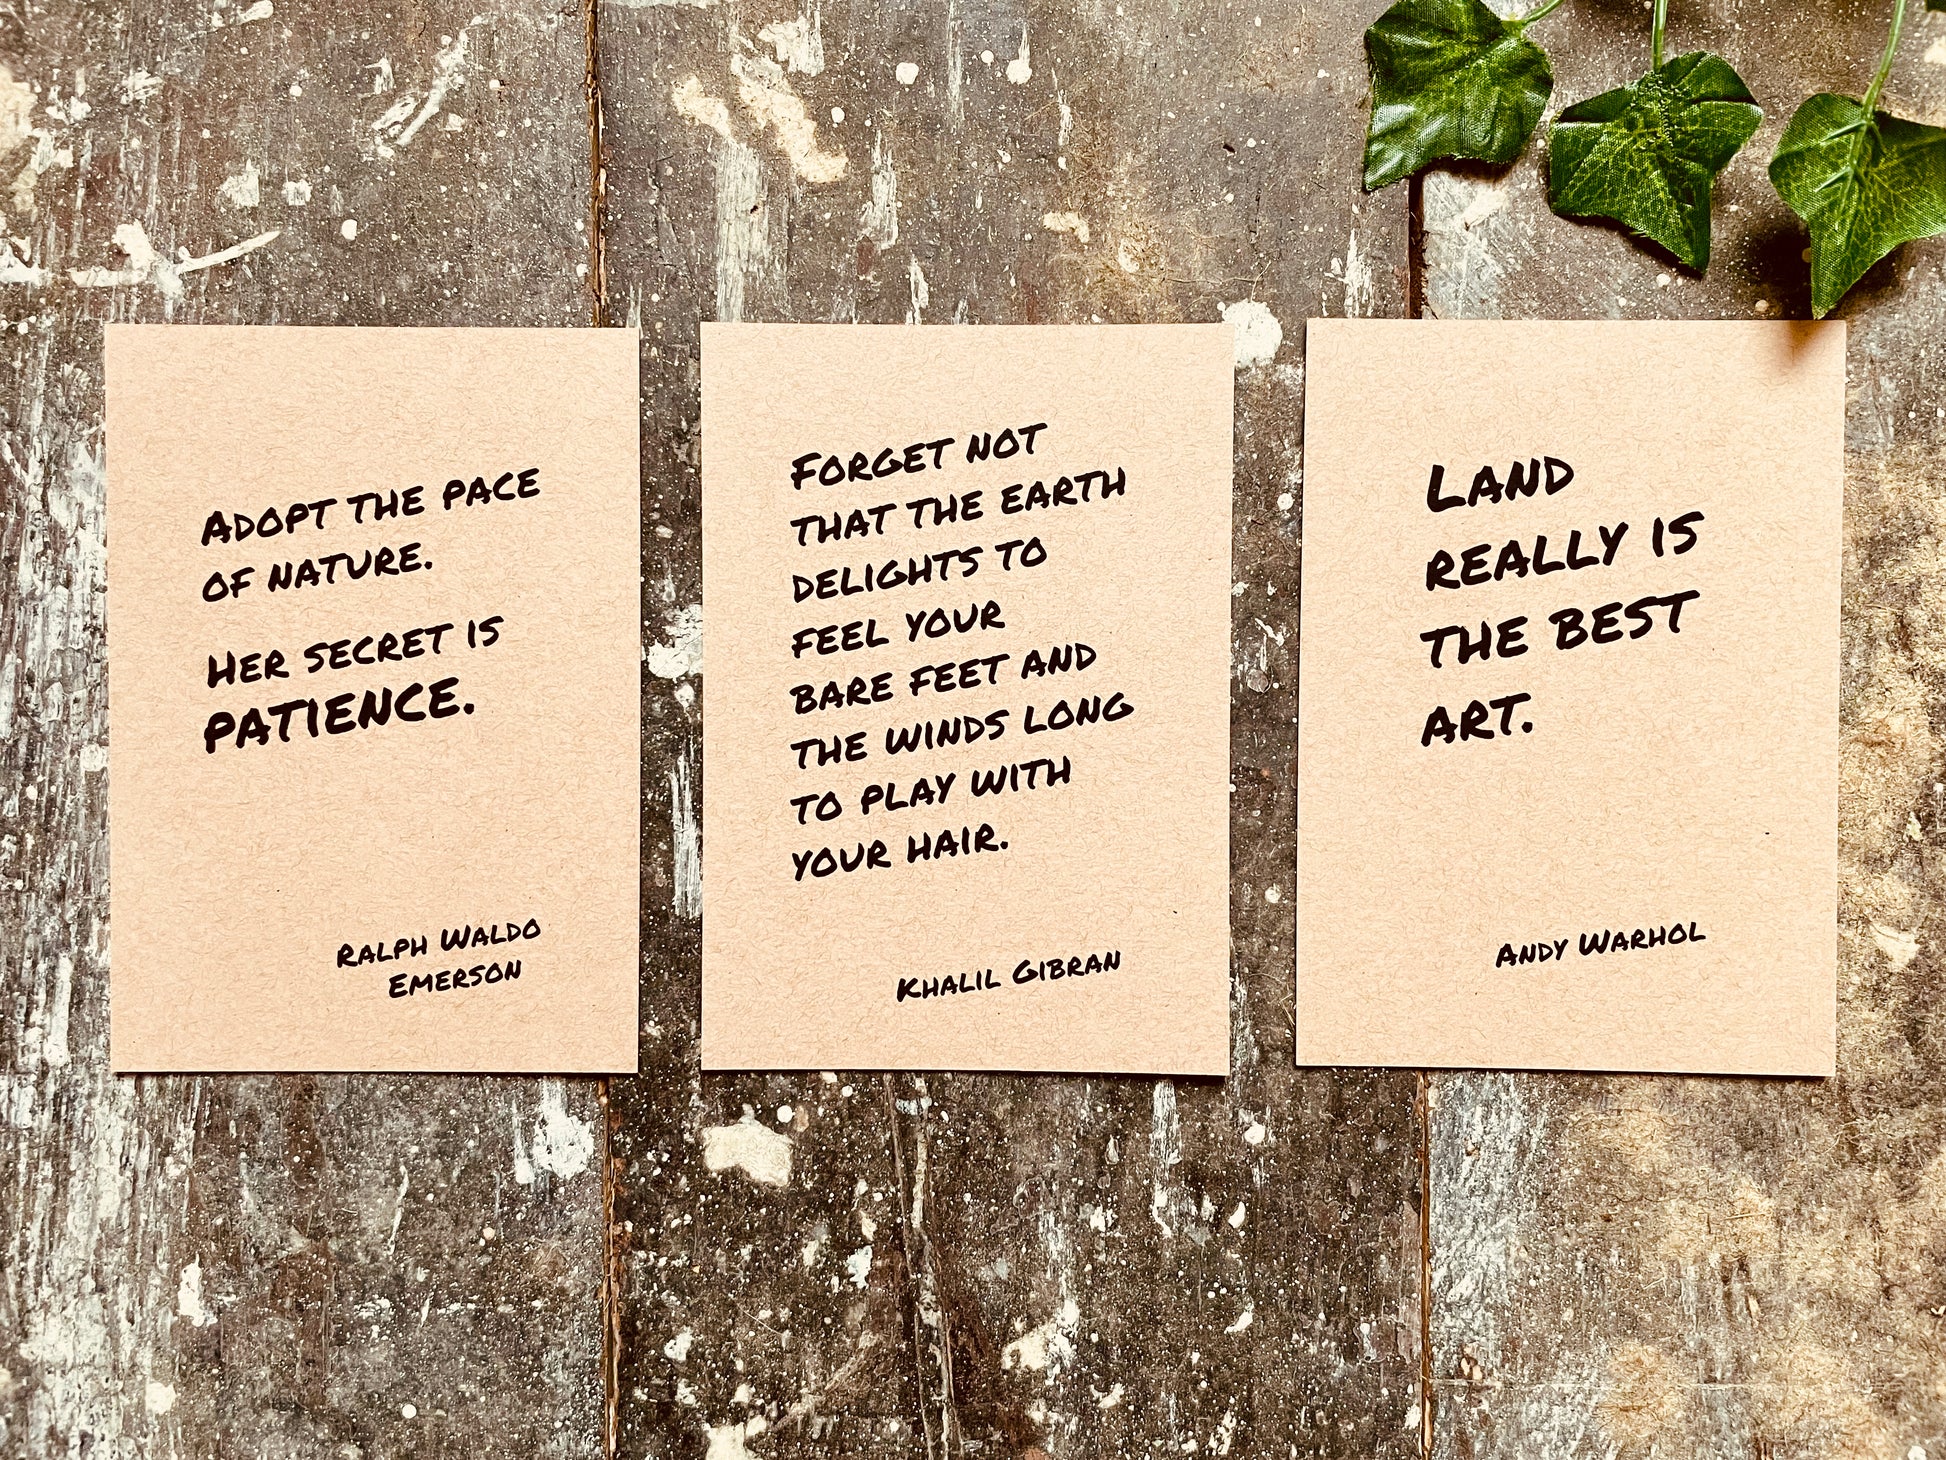 Adopt the pace
of nature.
Her secret is
patience.
Ralph Waldo
Emerson
Forget not
that the earth
delights to
feel your
bare feet and
the winds long
to play with
your hair.
Khalil Gibran
Land
really is
the best
art.
Andy Warhol